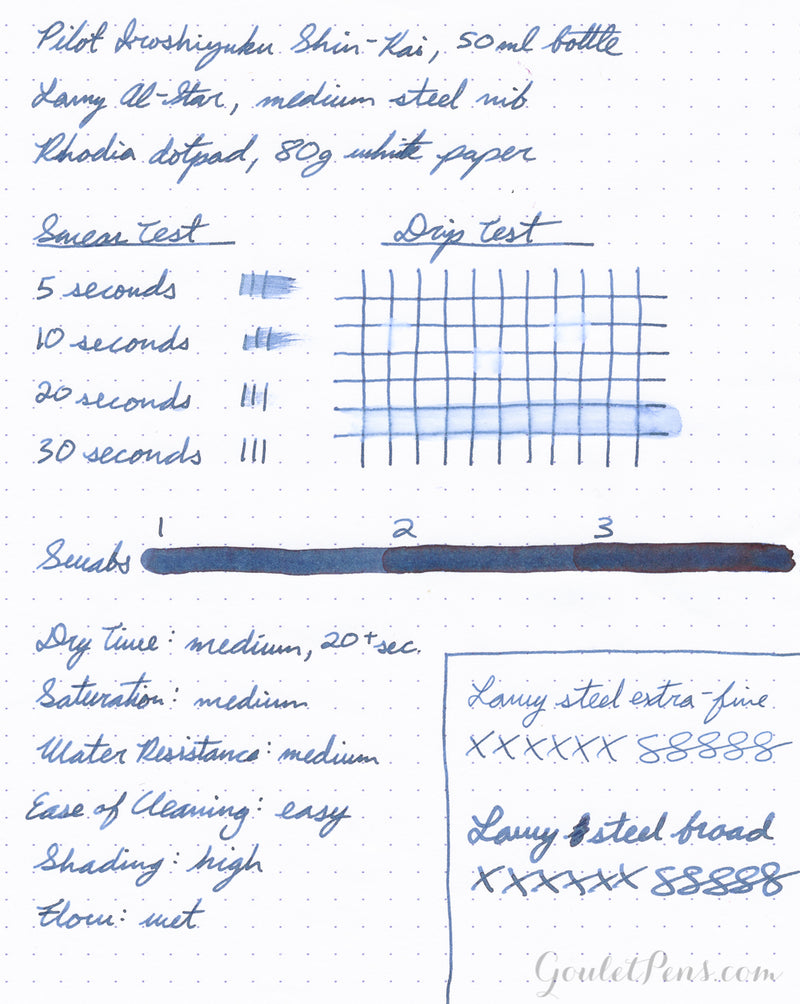 Pilot Iroshizuku Shin-Kai, 50ml bottle
Lamy Al-Star, medium steel nib
Rhodia dotpad, 80g white paper
Smear Test
5 seconds
10 seconds
20 seconds
30 seconds
Drip Test
1 2 3
Swabs
Dry Time: medium, 20+ sec.
Saturation: medium
Water Resistance: medium
Ease of Cleaning: easy
Shading: high
Flow: wet
Lamy steel extra-fine
xxxxxx 88888
Lamy steel broad
xxxxxx 88888
GouletPens.com